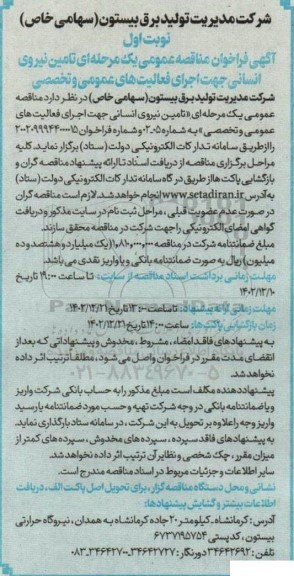 شرکت مدیریت تولید برق بیستون (سهامی خاص)
نوبت اول
آگهی فراخوان مناقصه عمومی یک مرحله ای تامین نیروی
انسانی جهت اجرای فعالیت های عمومی و تخصصی
شرکت مدیریت تولید برق بیستون (سهامی خاص) در نظر دارد مناقصه
عمومی یک مرحله ای «تامین نیروی انسانی جهت اجرای فعالیت های
عمومی و تخصصی» به شماره ۰۲۰۵ و شماره فراخوان
را از طریق سامانه تدارکات الکترونیکی دولت (ستاد) برگزار نماید. کلیه
مراحل برگزاری مناقصه از دریافت اسناد تا ارائه پیشنهاد مناقصه گران و
بازگشایی پاکت ها از طریق درگاه سامانه تدارکات الکترونیکی دولت (ستاد)
به آدرس www.setadiran.ir انجام خواهد شد. لازم است مناقصه گران
در صورت عدم عضویت قبلی، مراحل ثبت نام در سایت مذکور و دریافت
گواهی امضای الکترونیکی را جهت شرکت در مناقصه محقق سازند.
مبلغ ضمانتنامه شرکت در مناقصه (یک میلیارد و هشتصد و ده
میلیون) ریال به صورت ضمانتنامه بانکی و یا واریز نقدی می باشد.
مهلت زمانی برداشت اسناد مناقصه از سایت: تا ساعت ۱۹:۰۰ تاریخ
۱۴۰۲/۱۲/۱۰
مهلت زمانی ارائه پیشنهاد: تا ساعت ۱۳:۰۰ تاریخ ۱۴۰۲/۱۲/۲۱
زمان بازگشایی پاکت ها: ساعت ۱۴:۰۰ تاریخ ۱۴۰۲/۱۲/۲۱
به پیشنهادهای فاقد امضاء، مشروط، مخدوش و پیشنهاداتی که بعد از
انقضای مدت مقرر در فراخوان واصل می شود، مطلقاً ترتیب اثر داده
نخواهد شد.
پیشنهاد دهنده مکلف است مبلغ مذکور را به حساب بانکی شرکت واریز
و یا ضمانتنامه بانکی در وجه شرکت تهیه و حسب مورد ضمانتنامه یا رسید
واریز وجه را علاوه بر تحویل به این شرکت، در سامانه ستاد بارگذاری نماید.
به پیشنهادهای فاقد سپرده، سپرده های مخدوش، سپرده های کمتر از
میزان مقرر، چک شخصی و نظایر آن ترتیب اثر داده نخواهد شد.
سایر اطلاعات و جزئیات مربوط در اسناد مناقصه مندرج است.
نشانی و محل دستگاه مناقصه گزار، برای تحویل اصل پاکت الف، دریافت
اطلاعات بیشتر و گشایش پیشنهادها:
آدرس: کرمانشاه، کیلومتر ۲۰ جاده کرمانشاه به همدان، نیروگاه حرارتی
بیستون، کدپستی ۶۷۳۷۱۹۵۷۵۴
تلفن: ۳۴۶۴۲۶۹۲ دورنگار: ۳۴۶۴۲۷۲۷-۳۴۶۴۲۷۰۰-۰۸۳